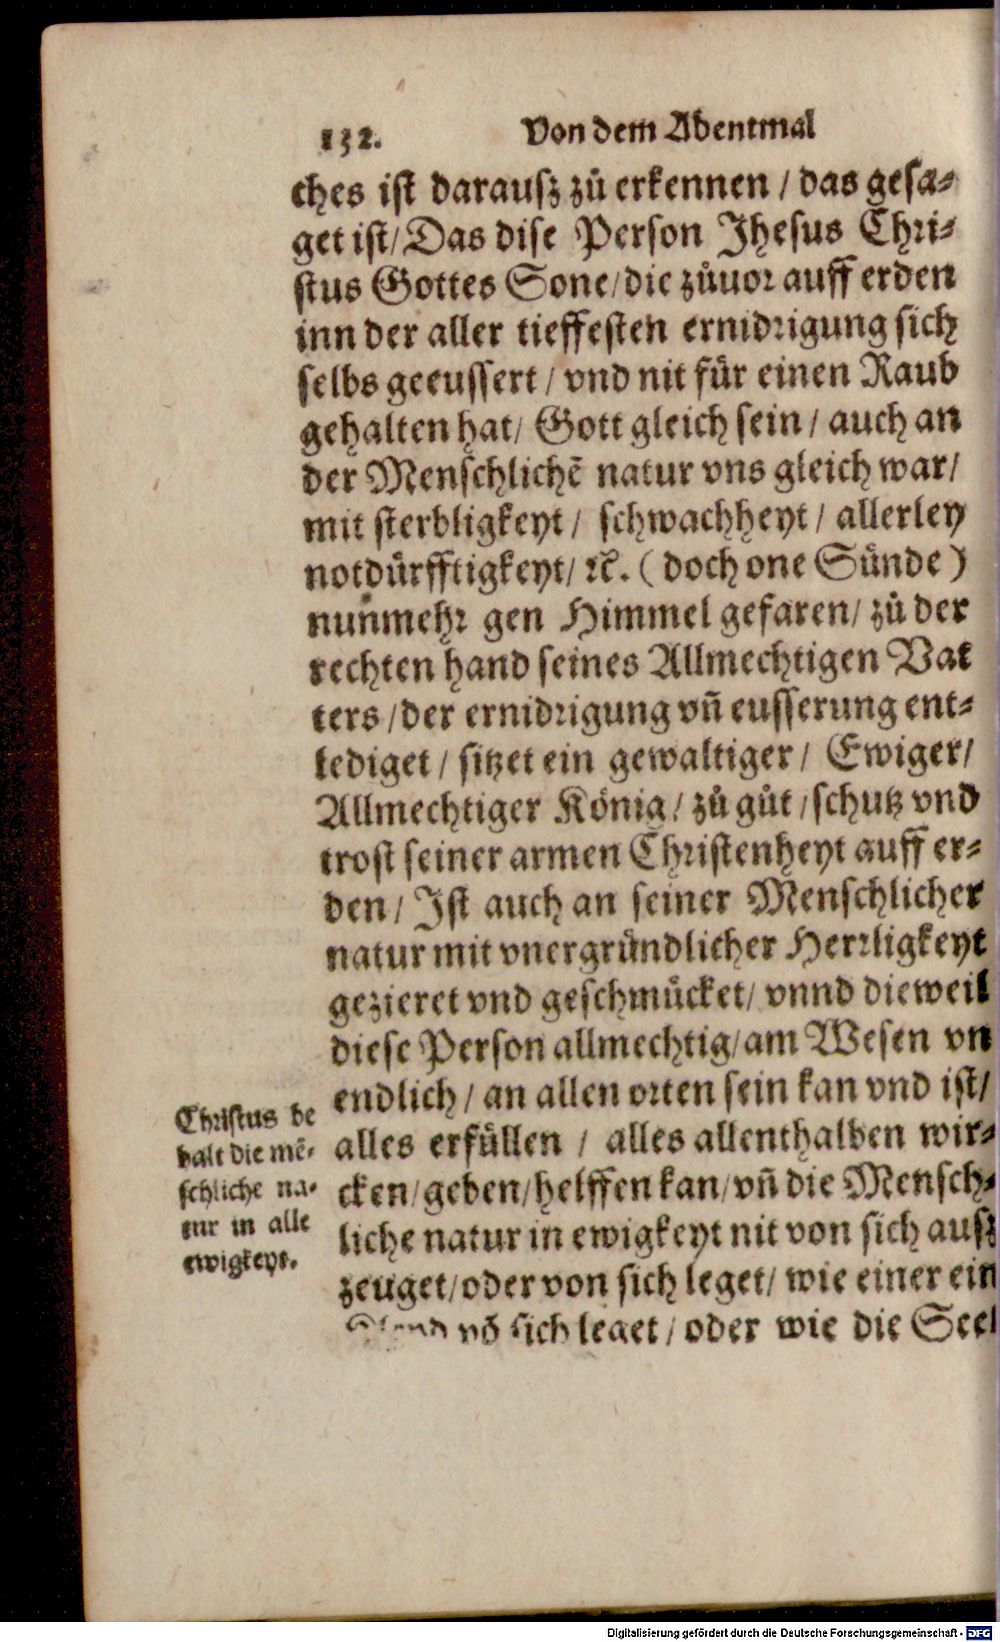 132. Von dem Abentmal
ches ist darausz zů erkennen / das gesa-
get ist/ Das dise Person Jhesus Chri-
stus Gottes Sone/ die zůuor auff erden
inn der aller tieffesten ernidrigung sich
selbs geeussert / vnd nit für einen Raub
gehalten hat/ Gott gleich sein / auch an
der Menschlichē natur vns gleich war/
mit sterbligkeyt / schwachheyt / allerley
notdürfftigkeyt/ ꝛc. ( doch one Sünde )
nunmehr gen Himmel gefaren/ zů der
rechten hand seines Allmechtigen Vat
ters / der ernidrigung vñ eusserung ent-
lediget / sitzet ein gewaltiger / Ewiger/
Allmechtiger König / zů gůt / schutz vnd
trost seiner armen Christenheyt auff er-
den / Ist auch an seiner Menschlicher
natur mit vnergründlicher Herrligkeyt
gezieret vnd geschmücket/ vnnd dieweil
diese Person allmechtig/ am Wesen vn
endlich / an allen orten sein kan vnd ist/
alles erfüllen / alles allenthalben wir-
cken/ geben/ helffen kan/ vñ die Mensch-
liche natur in ewigkeyt nit von sich ausz
zeuget/ oder von sich leget/ wie einer ein
vō sich leget / oder wie die Seel
Christus be
halt die mē-
schliche na-
tur in alle
ewigkeyt.
Digitalisierung gefördert durch die Deutsche Forschungsgemeinschaft - DFG